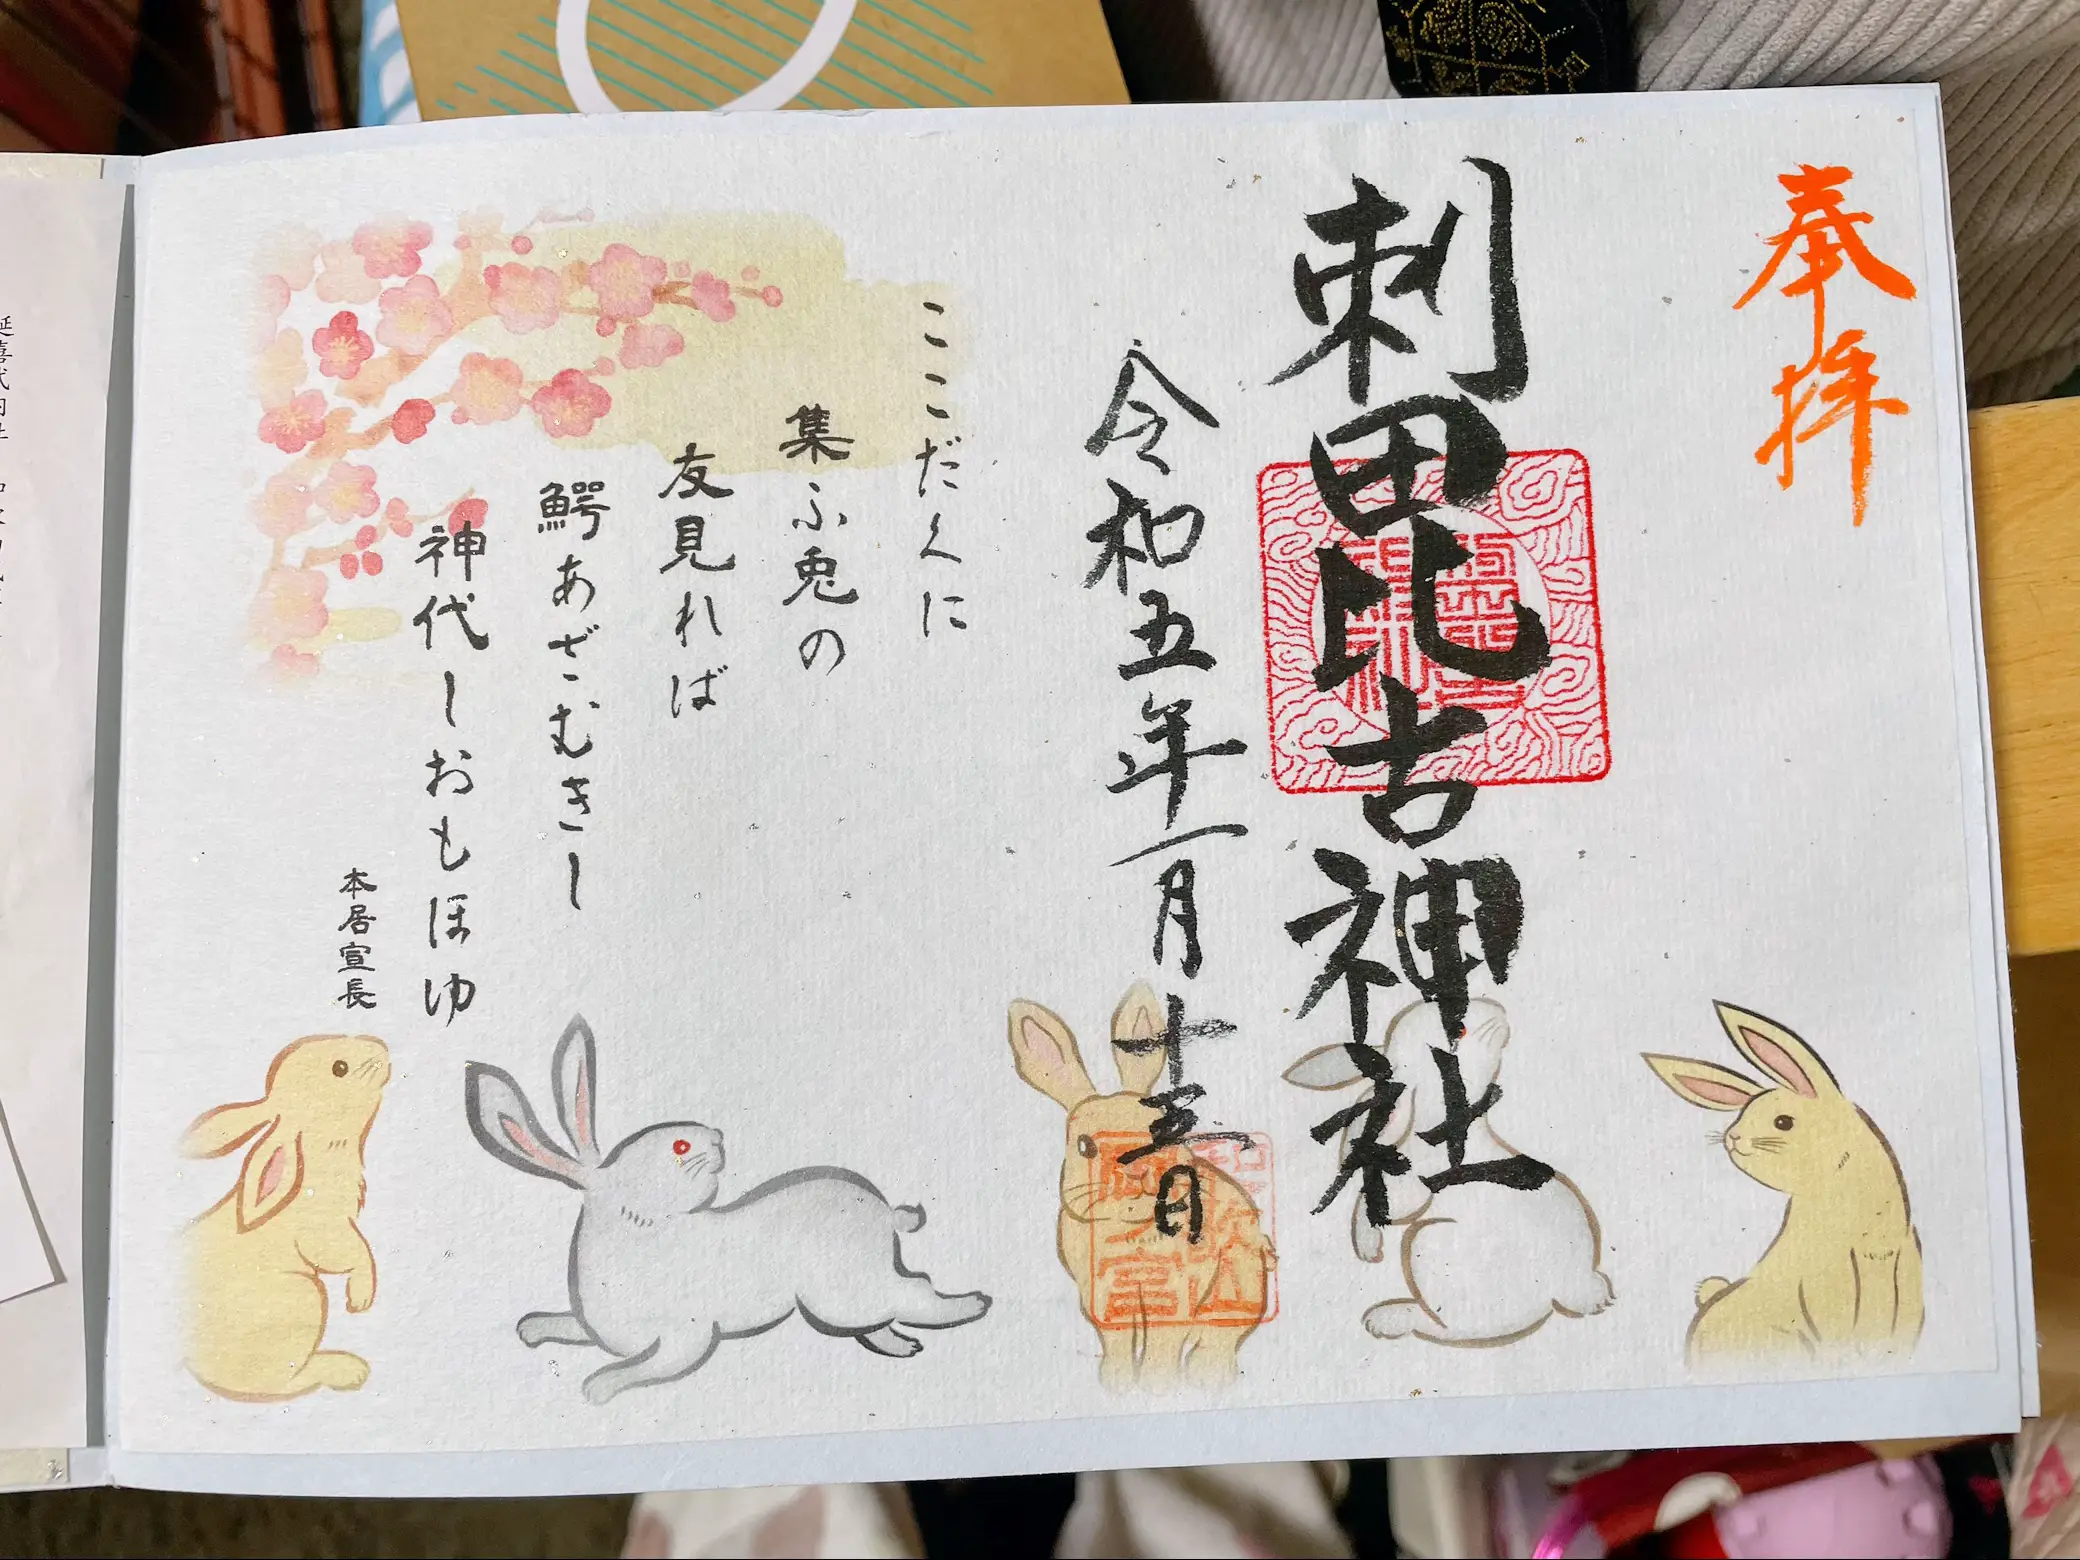 奉拝
刺田比古神社
令和五年一月十三日
ここだくに
集ふ兎の
友見れば
鰐あざむきし
神代しおもほゆ
本居宣長